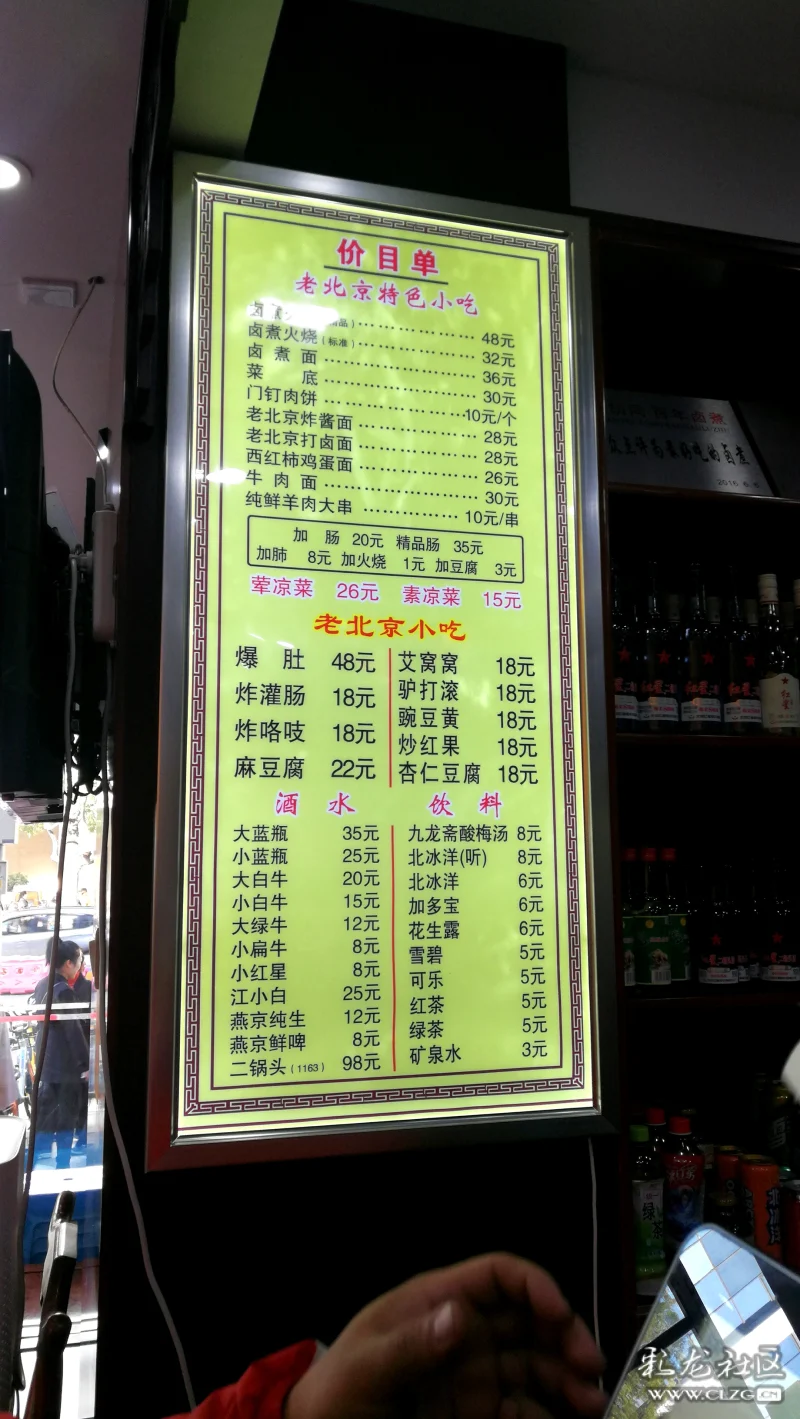 价目单
老北京特色小吃
卤煮火烧(精品) 48元
卤煮火烧(标准) 32元
卤煮面 36元
菜底 30元
门钉肉饼 10元/个
老北京炸酱面 28元
老北京打卤面 28元
西红柿鸡蛋面 26元
牛肉面 30元
纯鲜羊肉大串 10元/串
加肠 20元 精品肠 35元
加肺 8元 加火烧 1元 加豆腐 3元
荤凉菜 26元 素凉菜 15元
老北京小吃
爆肚 48元
炸灌肠 18元
炸咯吱 18元
麻豆腐 22元
艾窝窝 18元
驴打滚 18元
豌豆黄 18元
炒红果 18元
杏仁豆腐 18元
酒水
大蓝瓶 35元
小蓝瓶 25元
大白牛 20元
小白牛 15元
大绿牛 12元
小扁牛 8元
小红星 8元
江小白 25元
燕京纯生 12元
燕京鲜啤 8元
二锅头(1163) 98元
饮料
九龙斋酸梅汤 8元
北冰洋(听) 8元
北冰洋 6元
加多宝 6元
花生露 6元
雪碧 5元
可乐 5元
红茶 5元
绿茶 5元
矿泉水 3元
卤煮
的卤煮
红星
绿茶
北冰洋
彩龙社区
WWW.CLZG.CN